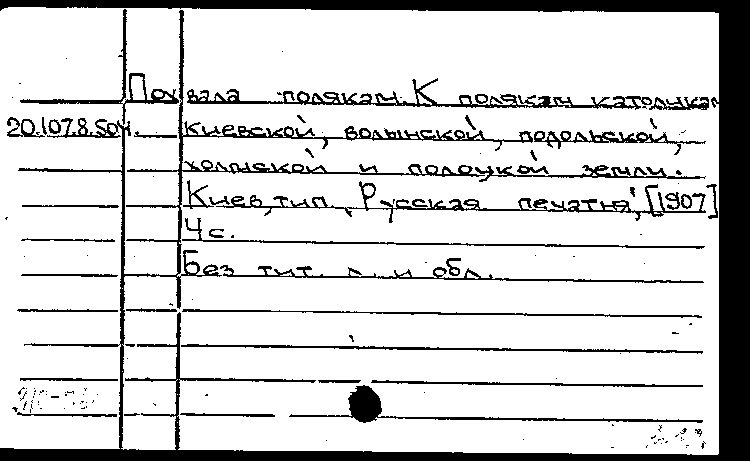 Похвала полякам. К полякам католикам
20.107.8.504. киевской, волынской, подольской,
холмской и полоцкой земли.
Киев, тип. "Русская печатня", [1907]
4 с.
Без тит. л. и обл.